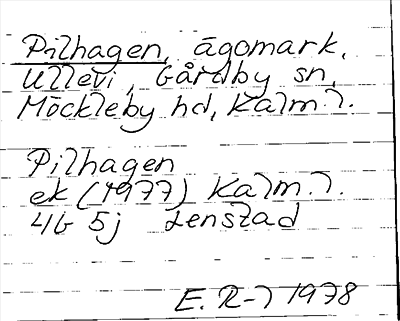 Pilhagen, ägomark,
Ullevi, Gårdby sn,
Möckleby hd, Kalm.l.
Pilhagen
ek (1977) Kalm.l.
4G 5j Lenstad
E. R-l 1978